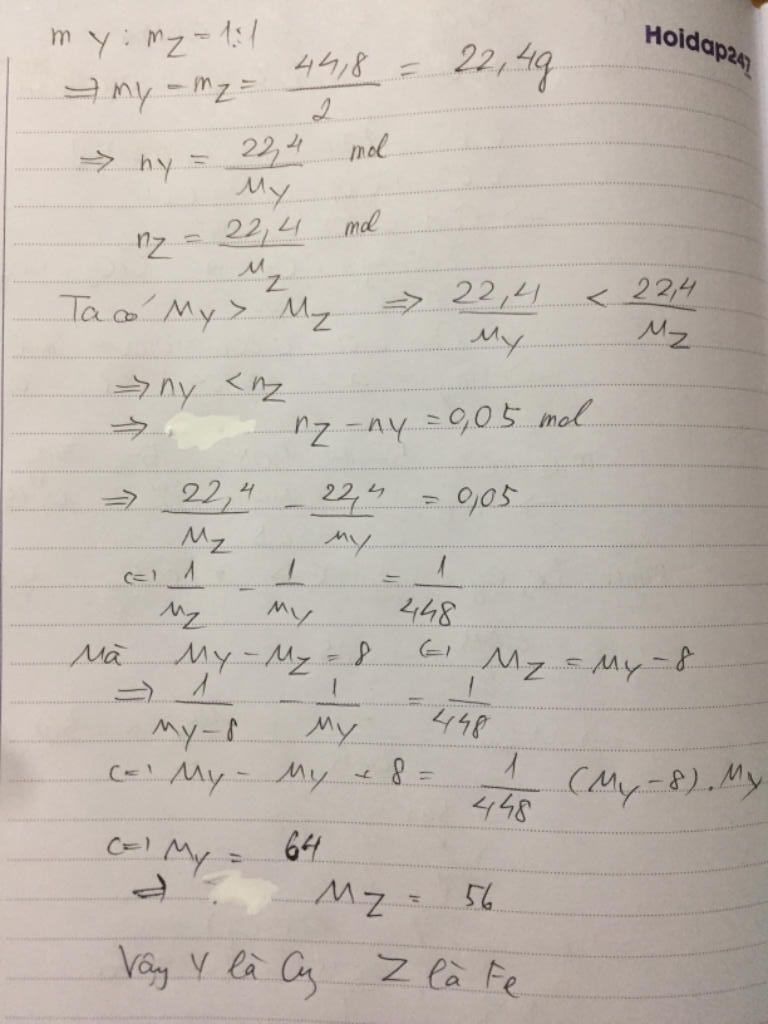 m Y : mZ = 1:1
Hoidap247
⇒ mY = mZ = 44,8/2 = 22,4g
⇒ nY = 22,4/MY mol
nZ = 22,4/MZ mol
Ta có MY > MZ ⇒ 22,4/MY < 22,4/MZ
⇒ nY < nZ
⇒ nZ - nY = 0,05 mol
⇒ 22,4/MZ - 22,4/MY = 0,05
c=1 1/MZ - 1/MY = 1/448
Mà MY - MZ = 8 c=1 MZ = MY - 8
⇒ 1/MY-8 - 1/MY = 1/448
c=1 MY - MY + 8 = 1/448 (MY - 8).MY
c=1 MY = 64
⇒ MZ = 56
Vậy Y là Cu Z là Fe